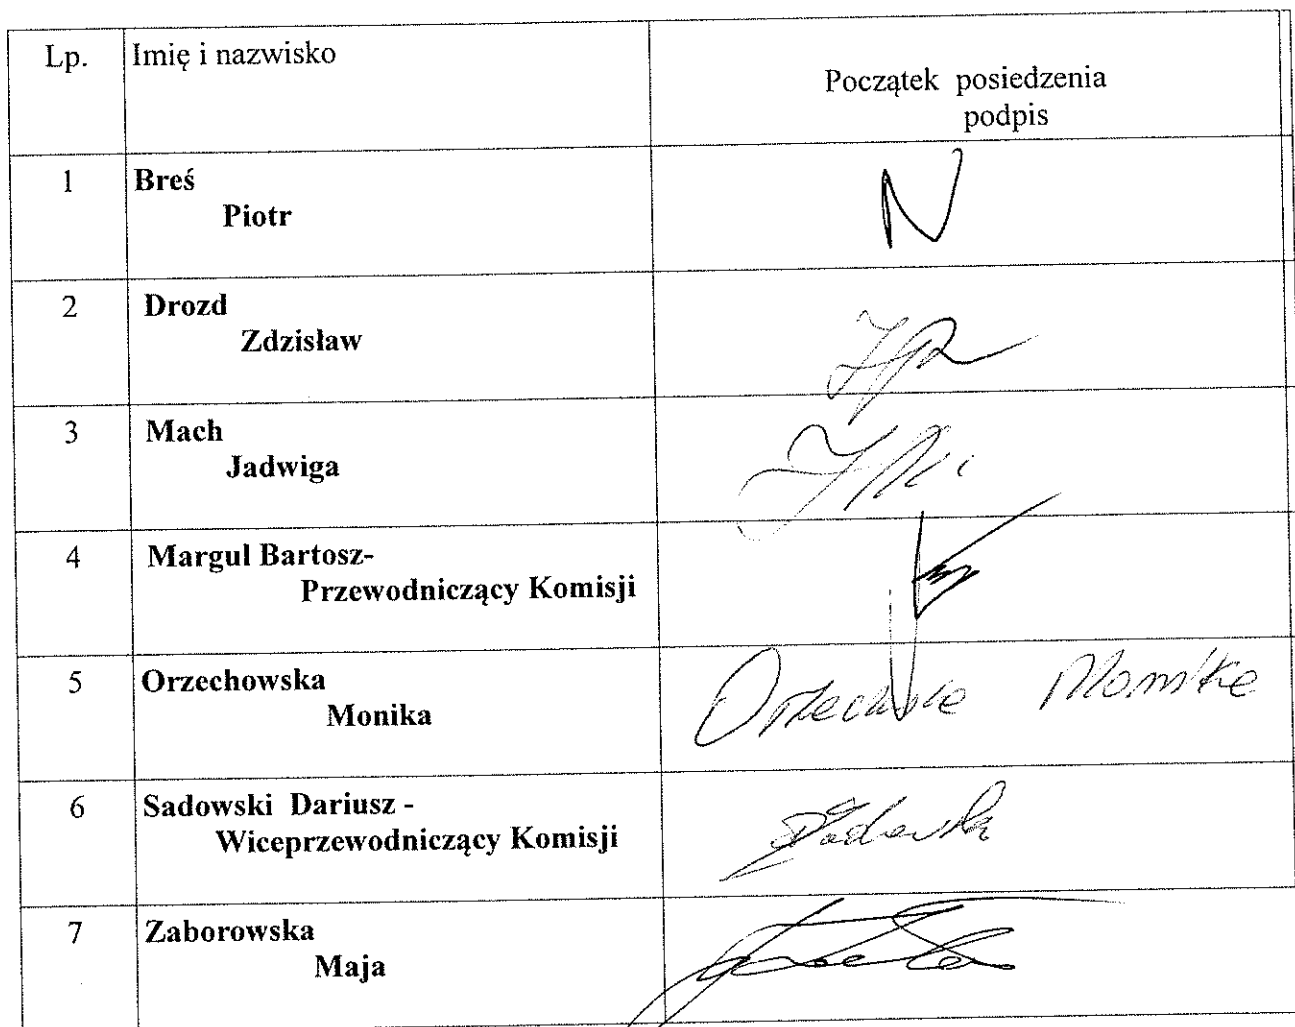 Lp. Imię i nazwisko
Początek posiedzenia
podpis
1 Breś
Piotr
2 Drozd
Zdzisław
3 Mach
Jadwiga
4 Margul Bartosz-
Przewodniczący Komisji
5 Orzechowska
Monika
6 Sadowski Dariusz -
Wiceprzewodniczący Komisji
7 Zaborowska
Maja